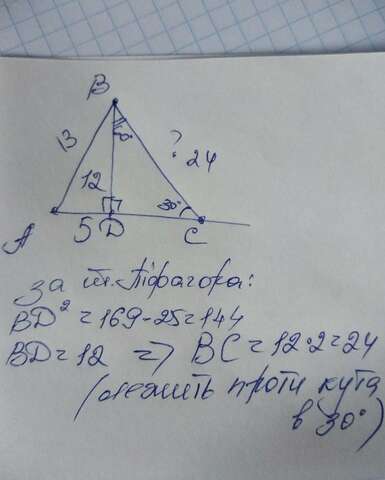 B
13
60°
?
24
12
30°
A
5
D
C
за т. Піфагора:
BD² = 169 - 25 = 144
BD = 12 => BC = 12·2 = 24
(лежить проти кута
в 30°)